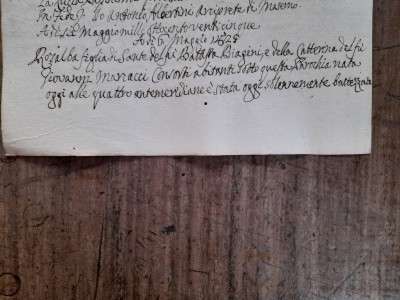 In Fede Io Antonio Albertini Arciprete di Maserno.
A di sei Maggio mille ottocento venti cinque
A di 6 Maggio 1825
Rosalba figlia di Sante del fu Battista Biagini, e della Catterina del fu
Giovanni Marracci Consorti abitanti sotto questa Parochia nata
oggi alle quattro antemeridiane è stata oggi solennemente battezzata